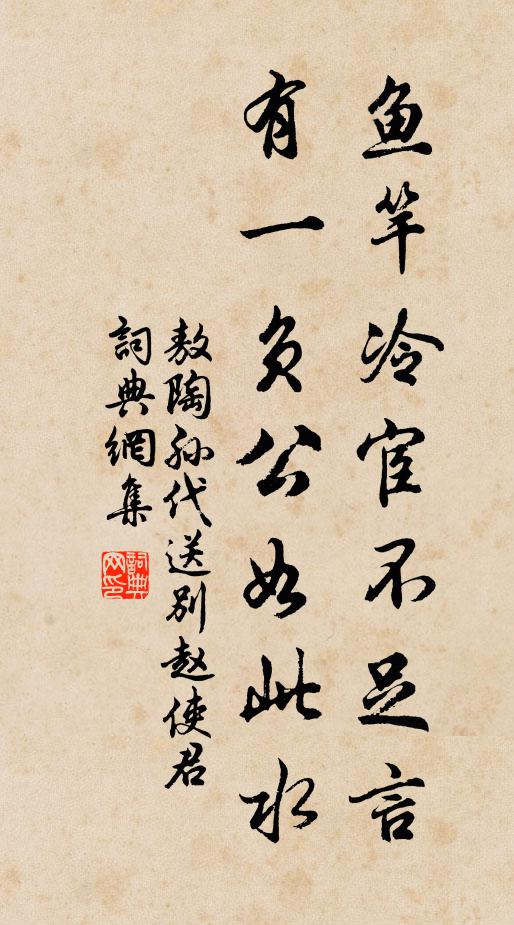 鱼竿冷宦不足言
有一负公如此水
敖陶孙代送别赵使君
詞典網集
詞典网印